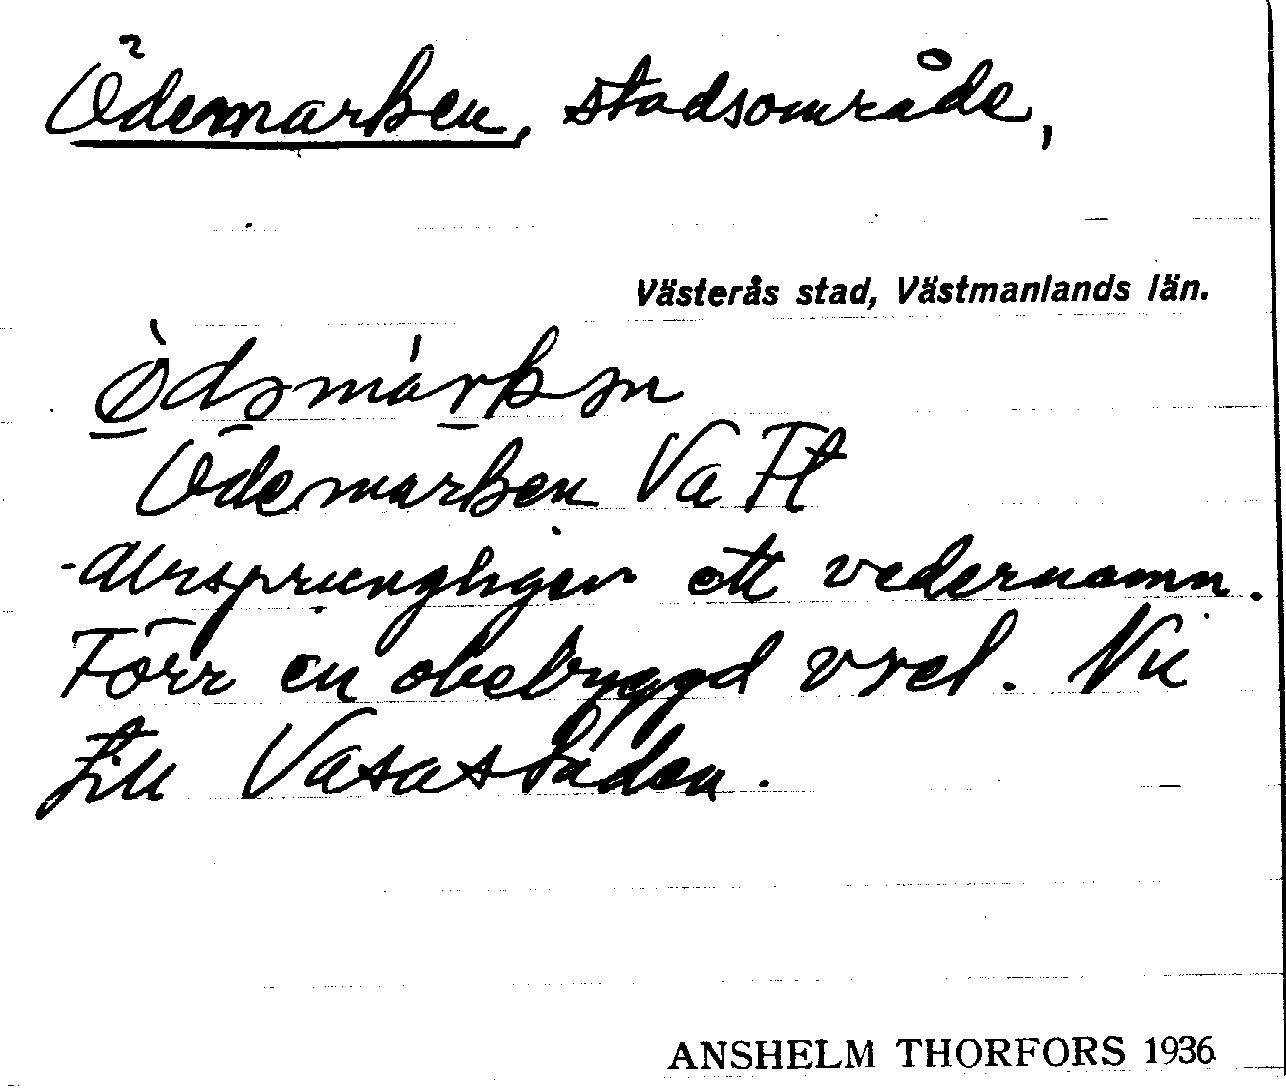 Ödemarken, stadsområde,
Västerås stad, Västmanlands län.
Ödemarken Va Ft
Ursprungligen ett vedernamn.
Förr en obebyggd vret. Nu
till Vasastaden.
ANSHELM THORFORS 1936